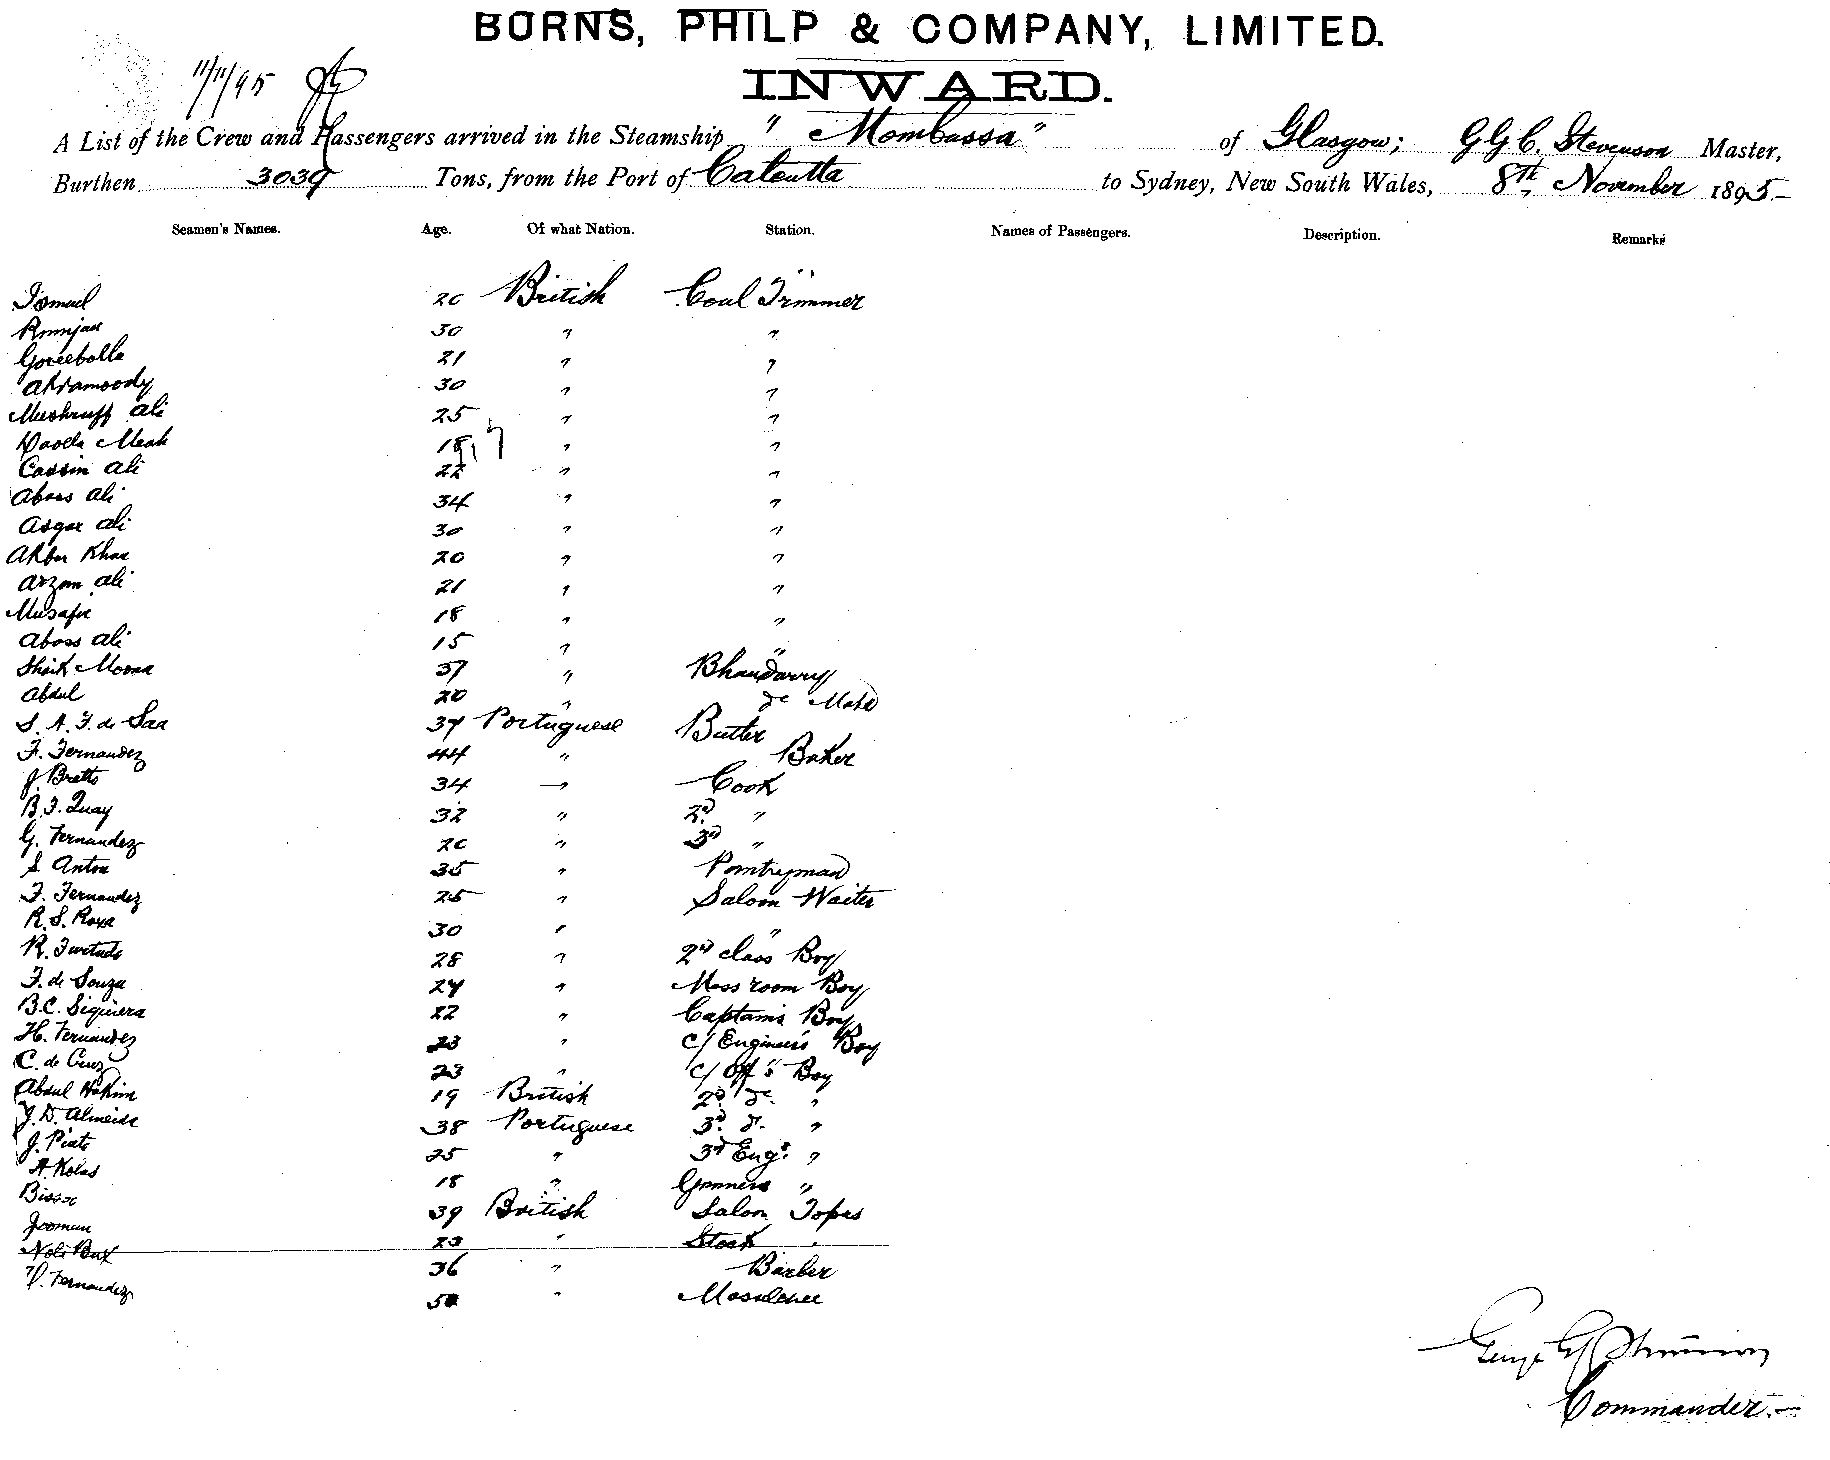 BURNS, PHILP & COMPANY, LIMITED.
11/11/95
INWARD.
A List of the Crew and Passengers arrived in the Steamship "Mombassa" of Glasgow; G G C. Stevenson Master,
Burthen 3039 Tons, from the Port of Calcutta to Sydney, New South Wales, 8th November 1895-
Seamen's Names. Age. Of what Nation. Station. Names of Passengers. Description. Remarks
Ismael 20 British Coal Trimmer
Rumjan 30 " "
Goreebolla 21 " "
Akramoody 30 " "
Mushruff Ali 25 " "
Meah 18 " "
Cassim Ali 22 " "
Aboss Ali 34 " "
Asgar Ali 30 " "
Akbar Khan 20 " "
Arzom Ali 21 " "
Musafir 18 " "
Aboss Ali 15 " "
Sheik Moona 37 " Bhandarry
Abdul 20 " do Mate
S. A. F. de Saa 37 Portuguese Butler
F. Fernandez 44 " Baker
J. Bretto 34 " Cook
B. F. Quay 32 " 2d "
G. Fernandez 20 " 3d "
S Anton 35 " Pantryman
F. Fernandez 25 " Saloon Waiter
R. S. Roza 30 " "
R. Furtado 28 " 2nd class Boy
F. de Souza 24 " Mess room Boy
B. C. Siquiera 22 " Captain's Boy
H. Fernandez 23 " C/ Engineers Boy
C. de Cruz 23 " C/ Off's Boy
Abdul Hakim 19 British 2d. do. "
J. D. Almeida 38 Portuguese 3d. do. "
J. Pinto 25 " 3d Engr. "
A. Kolas 18 " Gunners "
Bissa 39 British Saloon Topas
Jooman 23 " Stock "
Nobi Bux 36 " Barber
P. Fernandez 50 " Mosalchee
George G Stevenson
Commander.-